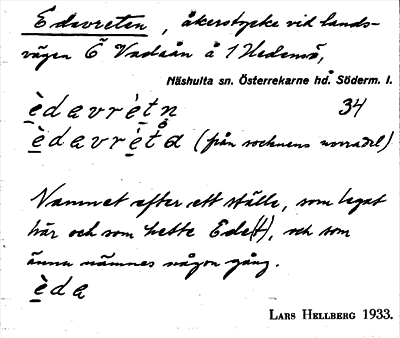 Edavreten, åkerstycke vid lands-
vägen Ö Vadsån å 1 Hedensö,
Näshulta sn. Österrekarne hd. Söderm. l.
è̱davrè̱tn̥ 34
è̱davrè̱ta (från socknens norradel)
Namnet efter ett ställe, som legat
här och som hette Ede(t), och som
ännu nämnes någon gång.
è̱da
Lars Hellberg 1933.